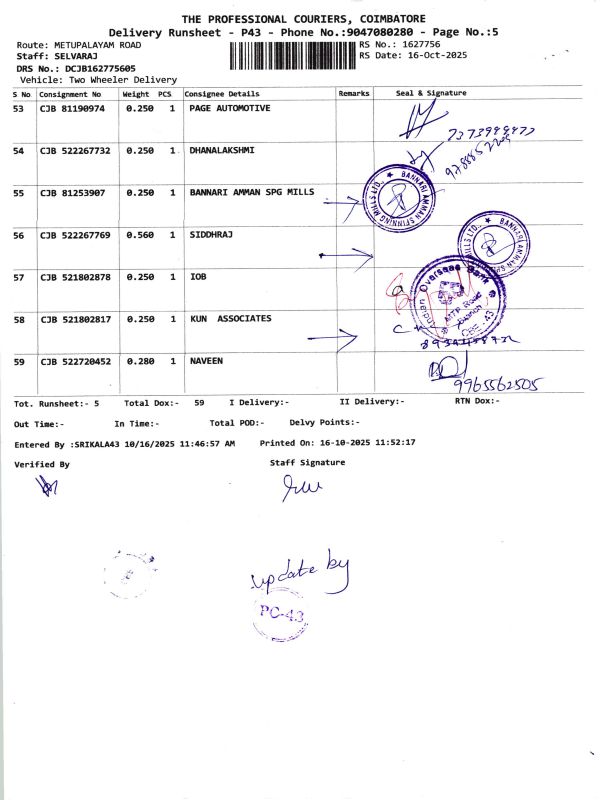 THE PROFESSIONAL COURIERS, COIMBATORE
Delivery Runsheet - P43 - Phone No.:9047080280 - Page No.:5
Route: METUPALAYAM ROAD RS No.: 1627756
Staff: SELVARAJ RS Date: 16-Oct-2025
DRS No.: DCJB162775605
Vehicle: Two Wheeler Delivery
S No Consignment No Weight PCS Consignee Details Remarks Seal & Signature
53 CJB 81190974 0.250 1 PAGE AUTOMOTIVE
54 CJB 522267732 0.250 1 DHANALAKSHMI
55 CJB 81253907 0.250 1 BANNARI AMMAN SPG MILLS
BANNARI AMMAN SPINNING MILLS LTD.,
56 CJB 522267769 0.560 1 SIDDHRAJ
BANNARI AMMAN SPINNING MILLS LTD.,
57 CJB 521802878 0.250 1 IOB
Overseas Bank
MTP Road
Branch
CBE - 43
58 CJB 521802817 0.250 1 KUN ASSOCIATES
59 CJB 522720452 0.280 1 NAVEEN
9965562505
Tot. Runsheet:- 5 Total Dox:- 59 I Delivery:- II Delivery:- RTN Dox:-
Out Time:- In Time:- Total POD:- Delvy Points:-
Entered By :SRIKALA43 10/16/2025 11:46:57 AM Printed On: 16-10-2025 11:52:17
Verified By Staff Signature
update by
PC-43